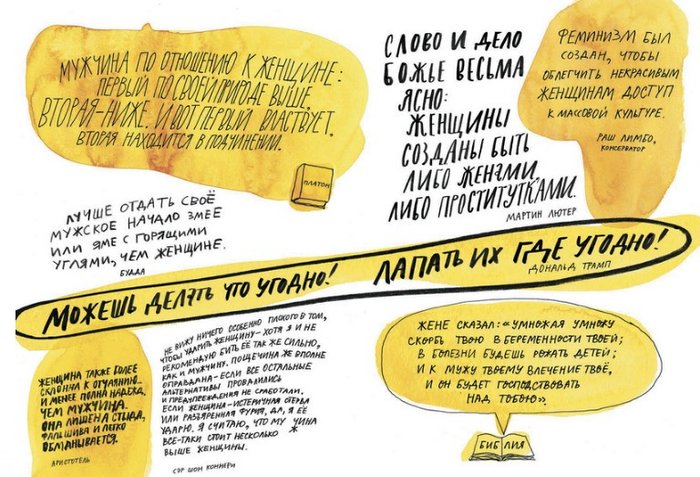 МУЖЧИНА ПО ОТНОШЕНИЮ К ЖЕНЩИНЕ:
ПЕРВЫЙ ПО СВОЕЙ ПРИРОДЕ ВЫШЕ,
ВТОРАЯ-НИЖЕ. И ВОТ ПЕРВЫЙ ВЛАСТВУЕТ,
ВТОРАЯ НАХОДИТСЯ В ПОДЧИНЕНИИ.
ПЛАТОН
СЛОВО И ДЕЛО
БОЖЬЕ ВЕСЬМА
ЯСНО:
ЖЕНЩИНЫ
СОЗДАНЫ БЫТЬ
ЛИБО ЖЕНАМИ,
ЛИБО ПРОСТИТУТКАМИ.
МАРТИН ЛЮТЕР
ФЕМИНИЗМ БЫЛ
СОЗДАН, ЧТОБЫ
ОБЛЕГЧИТЬ НЕКРАСИВЫМ
ЖЕНЩИНАМ ДОСТУП
К МАССОВОЙ КУЛЬТУРЕ.
РАШ ЛИМБО,
КОНСЕРВАТОР
ЛУЧШЕ ОТДАТЬ СВОЁ
МУЖСКОЕ НАЧАЛО ЗМЕЕ
ИЛИ ЯМЕ С ГОРЯЩИМИ
УГЛЯМИ, ЧЕМ ЖЕНЩИНЕ.
БУДДА
МОЖЕШЬ ДЕЛАТЬ ЧТО УГОДНО! ЛАПАТЬ ИХ ГДЕ УГОДНО!
ДОНАЛЬД ТРАМП
ЖЕНЩИНА ТАКЖЕ БОЛЕЕ
СКЛОННА К ОТЧАЯНИЮ...
И МЕНЕЕ ПОЛНА НАДЕЖД,
ЧЕМ МУЖЧИНА.
ОНА ЛИШЕНА СТЫДА,
ФАЛЬШИВА И ЛЕГКО
ОБМАНЫВАЕТСЯ.
АРИСТОТЕЛЬ
НЕ ВИЖУ НИЧЕГО ОСОБЕННО ПЛОХОГО В ТОМ,
ЧТОБЫ УДАРИТЬ ЖЕНЩИНУ-ХОТЯ Я И НЕ
РЕКОМЕНДУЮ БИТЬ ЕЁ ТАК ЖЕ СИЛЬНО,
КАК И МУЖЧИНУ. ПОЩЕЧИНА ЖЕ ВПОЛНЕ
ОПРАВДАНА-ЕСЛИ ВСЕ ОСТАЛЬНЫЕ
АЛЬТЕРНАТИВЫ ПРОВАЛИЛИСЬ
И ПРЕДУПРЕЖДЕНИЯ НЕ СРАБОТАЛИ.
ЕСЛИ ЖЕНЩИНА-ИСТЕРИЧНАЯ СТЕРВА
ИЛИ РАЗЪЯРЕННАЯ ФУРИЯ, ДА, Я ЕЁ
УДАРЮ. Я СЧИТАЮ, ЧТО МУЖЧИНА
ВСЕ-ТАКИ СТОИТ НЕСКОЛЬКО
ВЫШЕ ЖЕНЩИНЫ.
СЭР ШОН КОННЕРИ
ЖЕНЕ СКАЗАЛ: «УМНОЖАЯ УМНОЖУ
СКОРБЬ ТВОЮ В БЕРЕМЕННОСТИ ТВОЕЙ;
В БОЛЕЗНИ БУДЕШЬ РОЖАТЬ ДЕТЕЙ;
И К МУЖУ ТВОЕМУ ВЛЕЧЕНИЕ ТВОЁ,
И ОН БУДЕТ ГОСПОДСТВОВАТЬ
НАД ТОБОЮ».
БИБЛИЯ